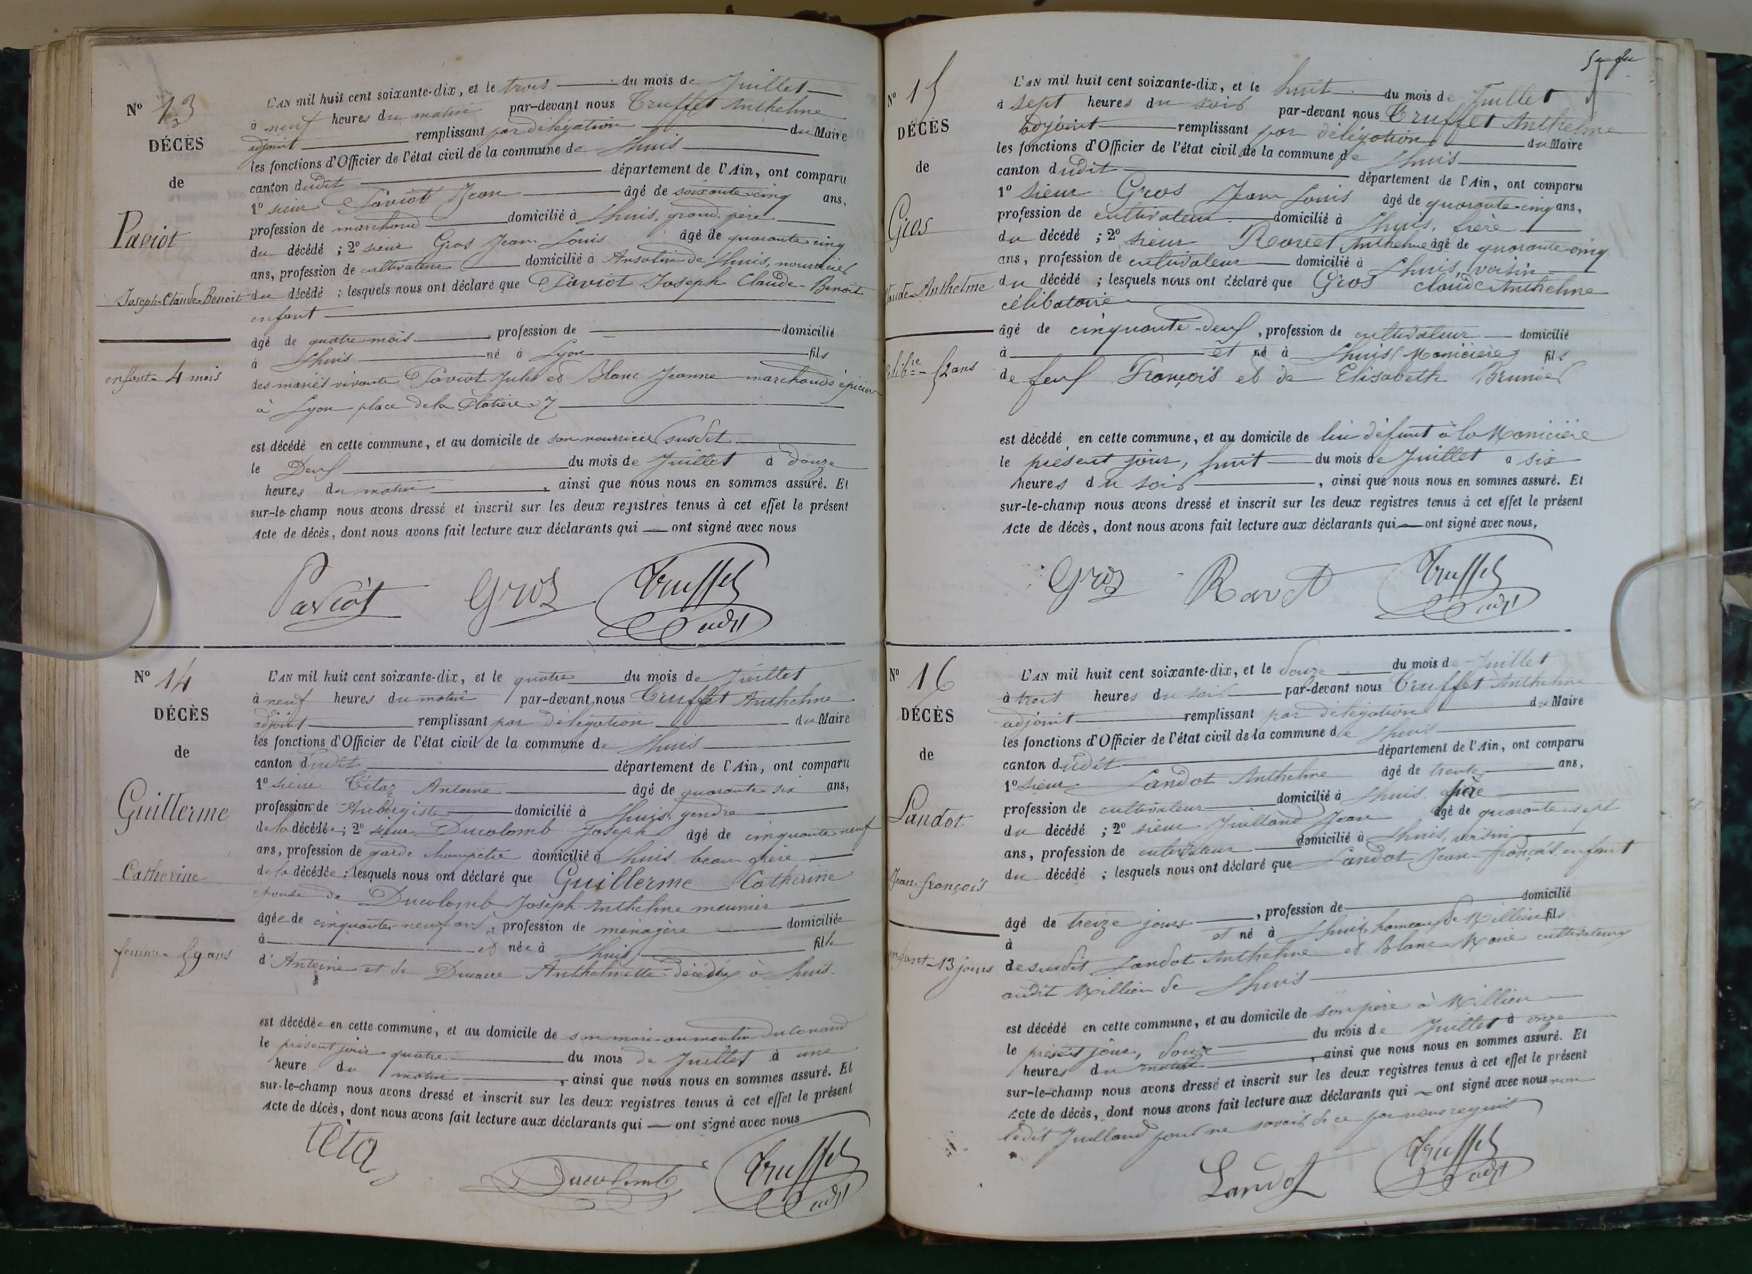 N° 13
DÉCÈS
de
Paviot
Joseph-Claude-Benoit
enfant 4 mois
L'AN mil huit cent soixante-dix, et le trois du mois de Juillet
à neuf heures du matin par-devant nous Truffet Anthelme
adjoint remplissant par délégation du Maire
les fonctions d'Officier de l'état civil de la commune de Lhuis
canton dudit département de l'Ain, ont comparu
1° sieur Paviot Jean âgé de soixante-cinq ans,
profession de marchand domicilié à Lhuis, grand père
du décédé ; 2° sieur Gros Jean Louis âgé de quarante cinq
ans, profession de cultivateur domicilié à Ansolin de Lhuis, nourricier
du décédé ; lesquels nous ont déclaré que Paviot Joseph Claude-Benoit
enfant
âgé de quatre mois, profession de domicilié
à Lhuis né à Lyon fils
des mariés vivants Paviot Jules et Blanc Jeanne marchands épiciers
à Lyon place de la Platière 7
est décédé en cette commune, et au domicile de son nourricier susdit
le Deux du mois de Juillet à douze
heures du matin, ainsi que nous nous en sommes assuré. Et
sur-le-champ nous avons dressé et inscrit sur les deux registres tenus à cet effet le présent
Acte de décès, dont nous avons fait lecture aux déclarants qui — ont signé avec nous
Paviot Gros Truffet
adjt
N° 14
DÉCÈS
de
Guillerme
Catherine
femme 59 ans
L'AN mil huit cent soixante-dix, et le quatre du mois de Juillet
à neuf heures du matin par-devant nous Truffet Anthelme
adjoint remplissant par délégation du Maire
les fonctions d'Officier de l'état civil de la commune de Lhuis
canton dudit département de l'Ain, ont comparu
1° sieur Tétaz Antoine âgé de quarante six ans,
profession de Aubergiste domicilié à Lhuis, gendre
de la décédée ; 2° sieur Ducolomb Joseph âgé de cinquante neuf
ans, profession de garde champêtre domicilié à Lhuis beau frère
de la décédée ; lesquels nous ont déclaré que Guillerme Catherine
épouse de Ducolomb Joseph Anthelme meunier
âgée de cinquante neuf ans, profession de ménagère domiciliée
à et née à Lhuis fille
d'Antoine et de Anthelmette décédés à Lhuis
est décédée en cette commune, et au domicile de son mari au moulin
le présent jour quatre du mois de Juillet à une
heure du matin, ainsi que nous nous en sommes assuré. Et
sur-le-champ nous avons dressé et inscrit sur les deux registres tenus à cet effet le présent
Acte de décès, dont nous avons fait lecture aux déclarants qui — ont signé avec nous
Téta
Ducolomb Truffet
adjt
N° 15
DÉCÈS
de
Gros
Claude-Anthelme
célibre 52 ans
L'AN mil huit cent soixante-dix, et le huit du mois de Juillet
à sept heures du soir par-devant nous Truffet Anthelme
adjoint remplissant par délégation du Maire
les fonctions d'Officier de l'état civil de la commune de Lhuis
canton dudit département de l'Ain, ont comparu
1° sieur Gros Jean Louis âgé de quarante-cinq ans,
profession de cultivateur domicilié à Lhuis, frère
du décédé ; 2° sieur Ravet Anthelme âgé de quarante-cinq
ans, profession de cultivateur domicilié à Lhuis, voisin
du décédé ; lesquels nous ont déclaré que Gros Claude Anthelme
célibataire
âgé de cinquante-deux, profession de cultivateur domicilié
à et né à Lhuis (Manicière) fils
de feu François et de Elisabeth Brunier
est décédé en cette commune, et au domicile de lui défunt à la Manicière
le présent jour, huit du mois de Juillet à six
heures du soir, ainsi que nous nous en sommes assuré. Et
sur-le-champ nous avons dressé et inscrit sur les deux registres tenus à cet effet le présent
Acte de décès, dont nous avons fait lecture aux déclarants qui — ont signé avec nous,
Gros Ravet Truffet
adjt
N° 16
DÉCÈS
de
Landot
Jean-françois
enfant 13 jours
L'AN mil huit cent soixante-dix, et le douze du mois de Juillet
à trois heures du soir par-devant nous Truffet Anthelme
adjoint remplissant par délégation du Maire
les fonctions d'Officier de l'état civil de la commune de Lhuis
canton dudit département de l'Ain, ont comparu
1° sieur Landot Anthelme âgé de trente ans,
profession de cultivateur domicilié à Lhuis père
du décédé ; 2° sieur Juilland Jean âgé de quarante-sept
ans, profession de cultivateur domicilié à Lhuis, voisin
du décédé ; lesquels nous ont déclaré que Landot Jean-françois enfant
âgé de treize jours, profession de domicilié
à et né à Lhuis hameau de Millieu fils
de susdit Landot Anthelme et Blanc Marie cultivateurs
audit Millieu de Lhuis
est décédé en cette commune, et au domicile de son père à Millieu
le présent jour, douze du mois de Juillet à onze
heures du matin, ainsi que nous nous en sommes assuré. Et
sur-le-champ nous avons dressé et inscrit sur les deux registres tenus à cet effet le présent
Acte de décès, dont nous avons fait lecture aux déclarants qui — ont signé avec nous non
ledit Juilland pour ne savoir de ce par nous requis
Landot Truffet
adjt